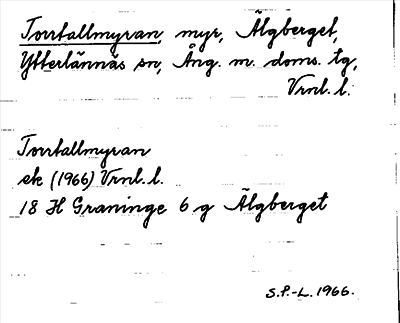 Torrtallmyran, myr, Älgberget,
Ytterlännäs sn, Ång. m. doms. tg,
Vrnl. l.
Torrtallmyran
ek (1966) Vrnl. l.
18 H Graninge 6 g Älgberget
S.P.-L. 1966.